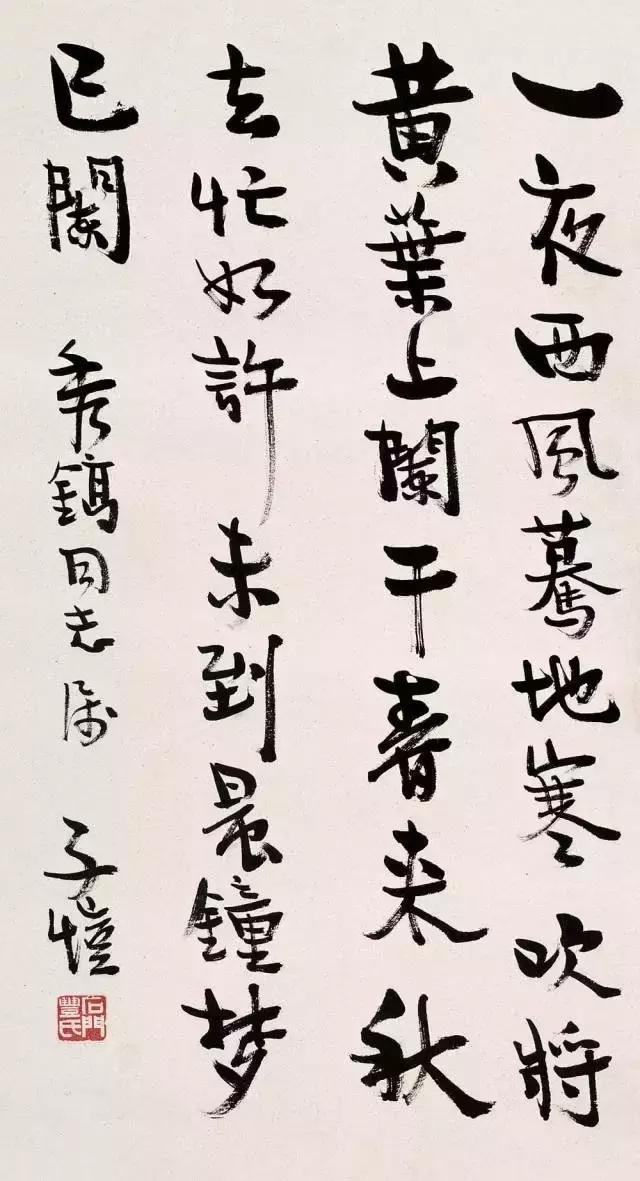 一夜西風驀地寒吹將
黄葉上闌干春来秋
去忙如許未到晨鐘梦
已闌
秀鎬同志屬
子愷
石門豐氏